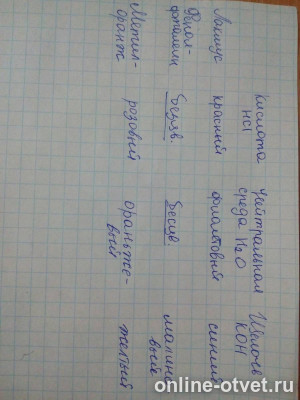 Кислота HCl
Нейтральная среда H₂O
Щелочь KOH
Лакмус красный фиолетовый синий
Фенол-
фталеин Бесцв. Бесцв. малин-
вый
Метил-
оранж розовый оранже-
вый желтый
online-otvet.ru